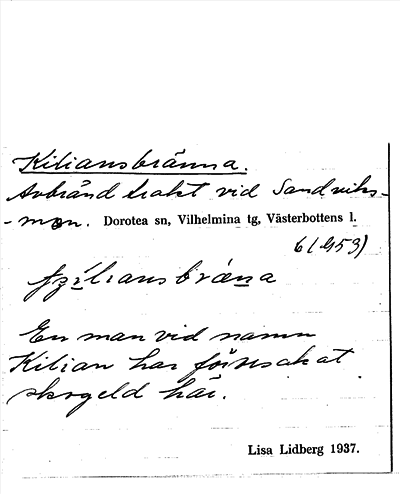 Kiliansbränna.
Avbränd trakt vid Sandviks-
-mon. Dorotea sn, Vilhelmina tg, Västerbottens l.
En man vid namn
Kilian har förorsakat
skogseld här.
Lisa Lidberg 1937.